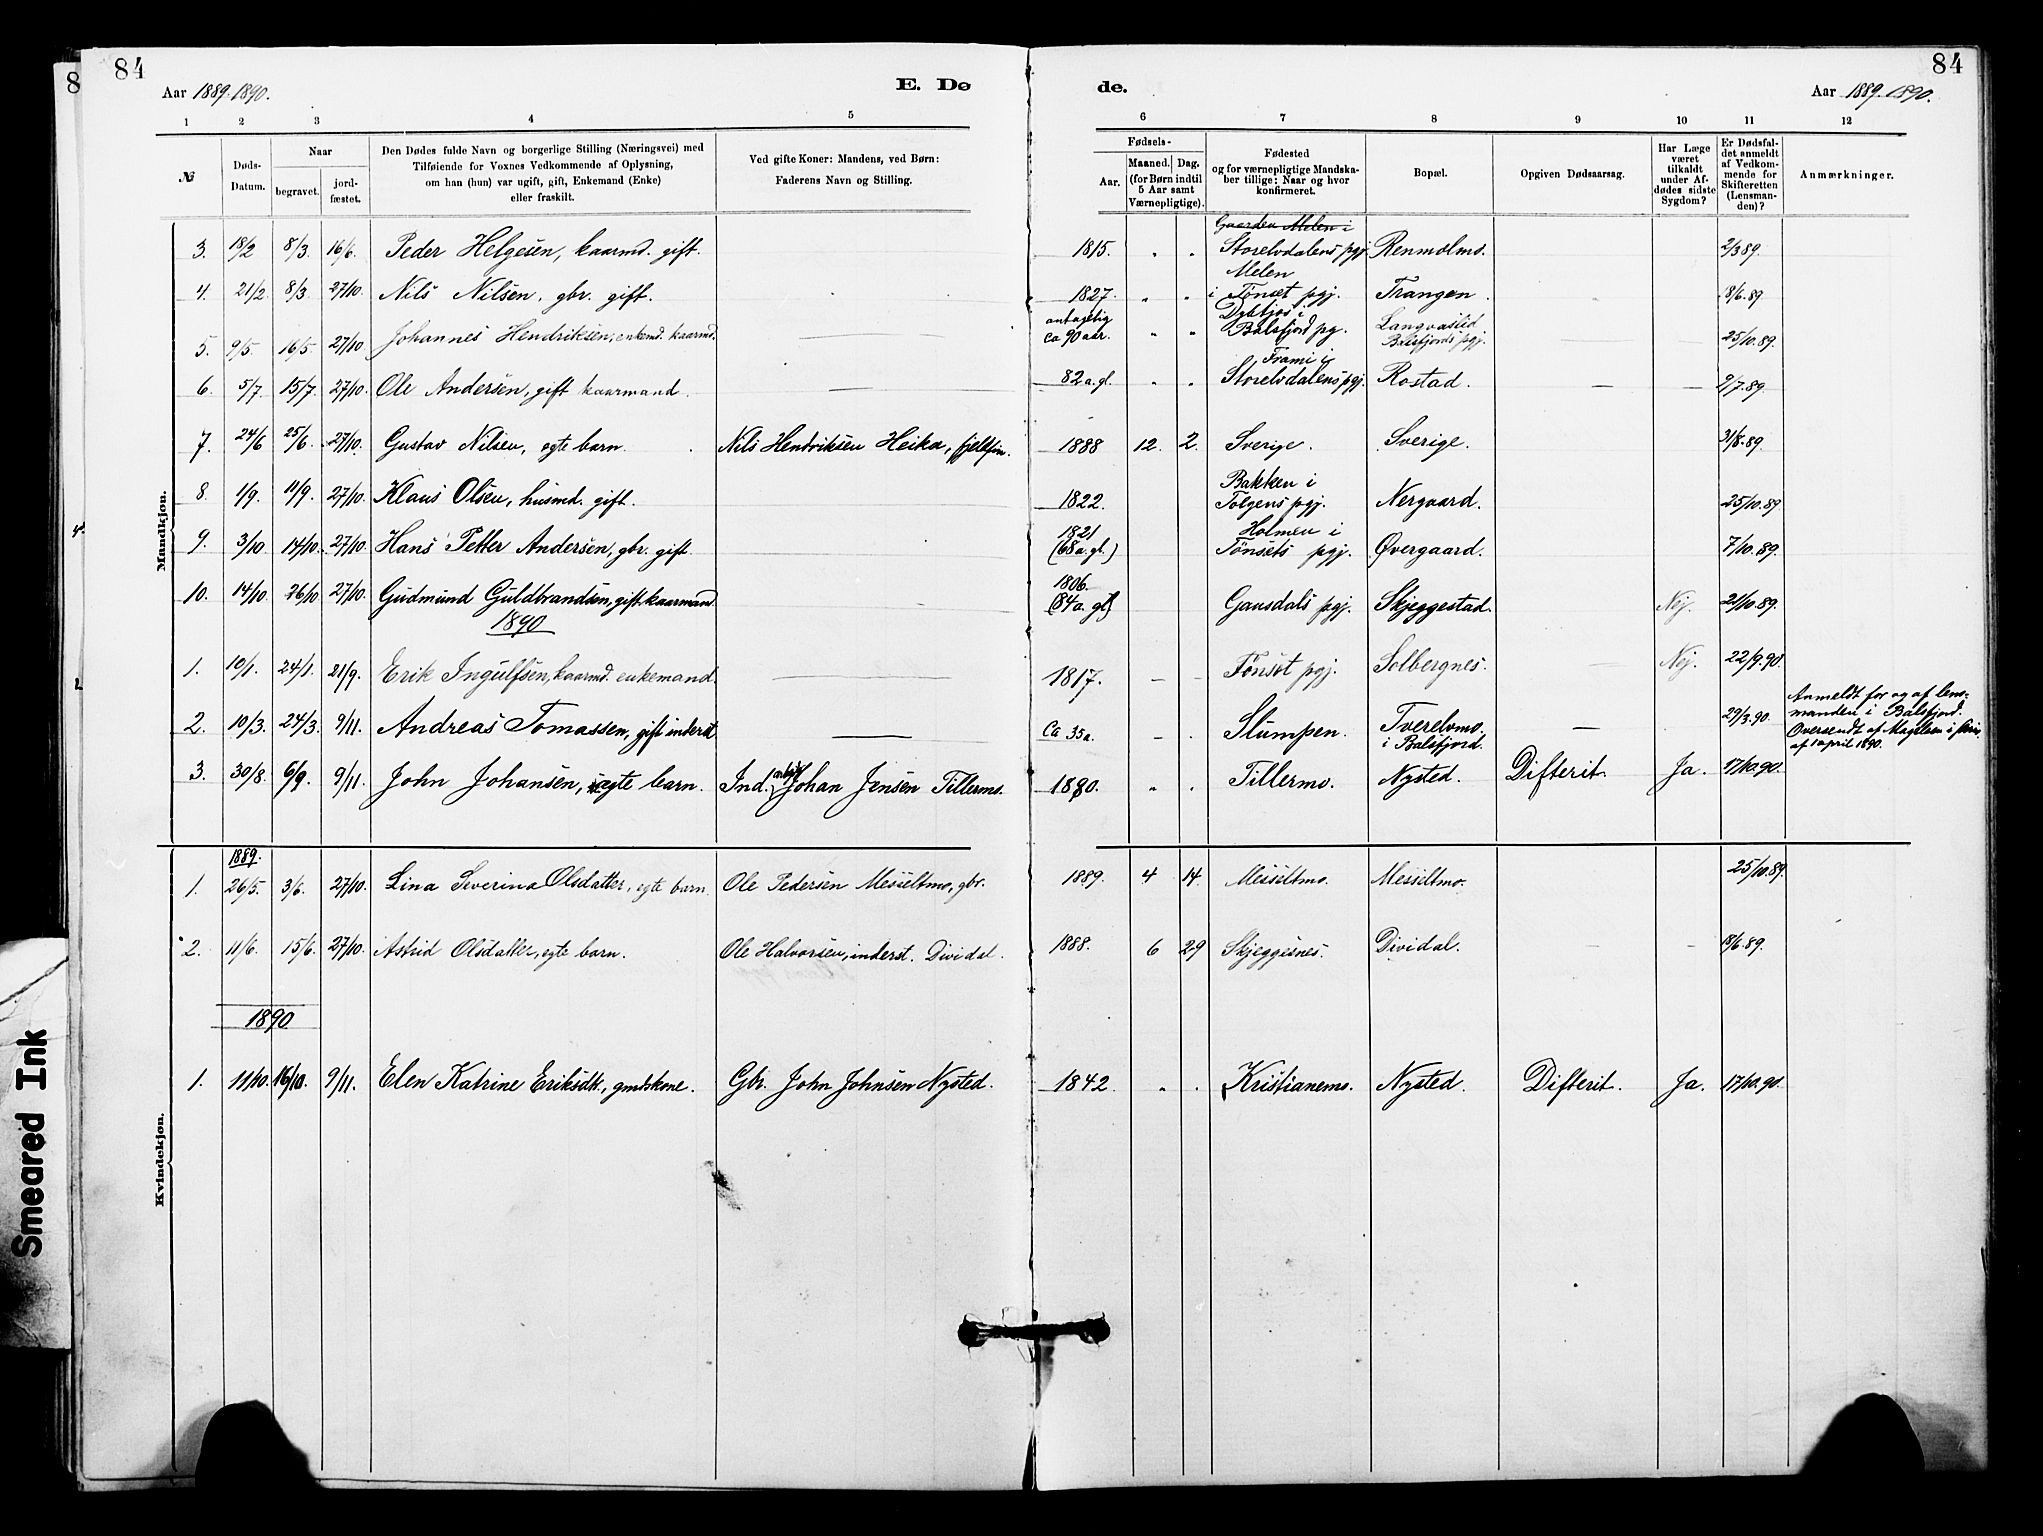 84
Aar 1889. 1890.
E. Dø
de.
84
Aar 1889. 1890.
1 2 3 4 5 6 7 8 9 10 11 12
№
Døds-Datum.
Naar
begravet.
jord-fæstet.
Den Dødes fulde Navn og borgerlige Stilling (Næringsvei) med
Tilføiende for Voxnes Vedkommende af Oplysning,
om han (hun) var ugift, gift, Enkemand (Enke)
eller fraskilt.
Ved gifte Koner: Mandens, ved Børn:
Faderens Navn og Stilling.
Fødsels-
Aar.
Maaned. Dag.
(for Børn indtil
5 Aar samt
Værnepligtige).
Fødested
og for værnepligtige Mandska-
ber tillige: Naar og hvor
konfirmeret.
Bopæl.
Opgiven Dødsaarsag.
Har Læge
været
tilkaldt
under Af-
dødes sidste
Sygdom?
Er Dødsfal-
det anmeldt
af Vedkom-
mende for
Skifteretten
(Lensman-
den)?
Anmærkninger.
Mandkjøn.
Gaarden Melen i
3. 18/2 8/3 16/6. Peder Helgesen, kaarmd. gift. 1815. " " Storelvdalens pgj. Renmolmo. 2/3 89.
Melen
4. 21/2 8/3 27/10. Nils Nilsen, gbr. gift. 1827. " " i Tönset pgj. Trangen. 18/6. 89.
antagelig
5. 9/5. 16/5. 27/10. Johannes Hendriksen, enkemd. kaarmd. ca 90 aar. " " Balsfjord pg. Balsfjords pgj. 25/10. 89.
Frami i
6. 5/7. 15/7. 27/10. Ole Andersen, gift kaarmand. — 82 a. gl. " " Storelvdalens pgj. Rostad. — — 9/7. 89.
7. 24/6 25/6. 27/10. Gustav Nilsen, egte barn. Nils Hendriksen Heika, fjeldfin. 1888 12. 2. Sverige. Sverige. 31/8. 89.
Bakken i
8. 1/9. 11/9. 27/10. Klaus Olsen, husmd. gift. 1822. Tolgens pgj. Nergaard. 25/10. 89.
1821 Holmen i
9. 3/10. 14/10. 27/10. Hans Petter Andersen, gbr. gift. (68 a. gl.) Tönsets pgj. Øvergaard. 7/10. 89.
1806.
10. 14/10. 26/10 27/10. Gudmund Guldbrandsen, gift kaarmand. (84 a. gl) Gausdals pgj. Skjeggestad. Nej. 21/10. 89.
1890
1. 10/1. 24/1. 21/9. Erik Ingulfsen, kaarmd. enkemand. — 1817. — — Tönset pgj. Solbergnes. — Nej. 22/9. 90.
2. 10/3. 24/3. 9/11. Andreas Tomassen, gift inderst — Ca 35 a. Slumpen. Tverelvmo. i Balsfjord. — 29/3. 90.
Anmeldt for og af lens-
manden i Balsfjord.
af 1 april 1890.
3. 30/8. 6/9. 9/11. John Johansen, egte barn. Ind. Johan Jensen Tillermo. 1880. " " Tillermo. Nysted. Difterit. Ja. 17/10. 90.
Kvindekjøn.
1889.
1. 26/5. 3/6. 27/10. Lina Severina Olsdatter, egte barn. Ole Pedersen Messeltmo, gbr. 1889. 4 14. Messeltmo. Messeltmo. 25/10. 89.
2. 11/6. 15/6. 27/10. Astrid Olsdatter, egte barn. Ole Halvorsen, inderst. Dividal. 1888. 6 29 Skjeggesnes. Dividal. — — 18/6. 89.
1890
1. 11/10. 16/10. 9/11. Elen Katrine Eriksdt., gmdskone. Gbr. John Johnsen Nysted. 1842 " " Kristianemo. Nysted. Difterit. Ja. 17/10. 90.
Smeared Ink